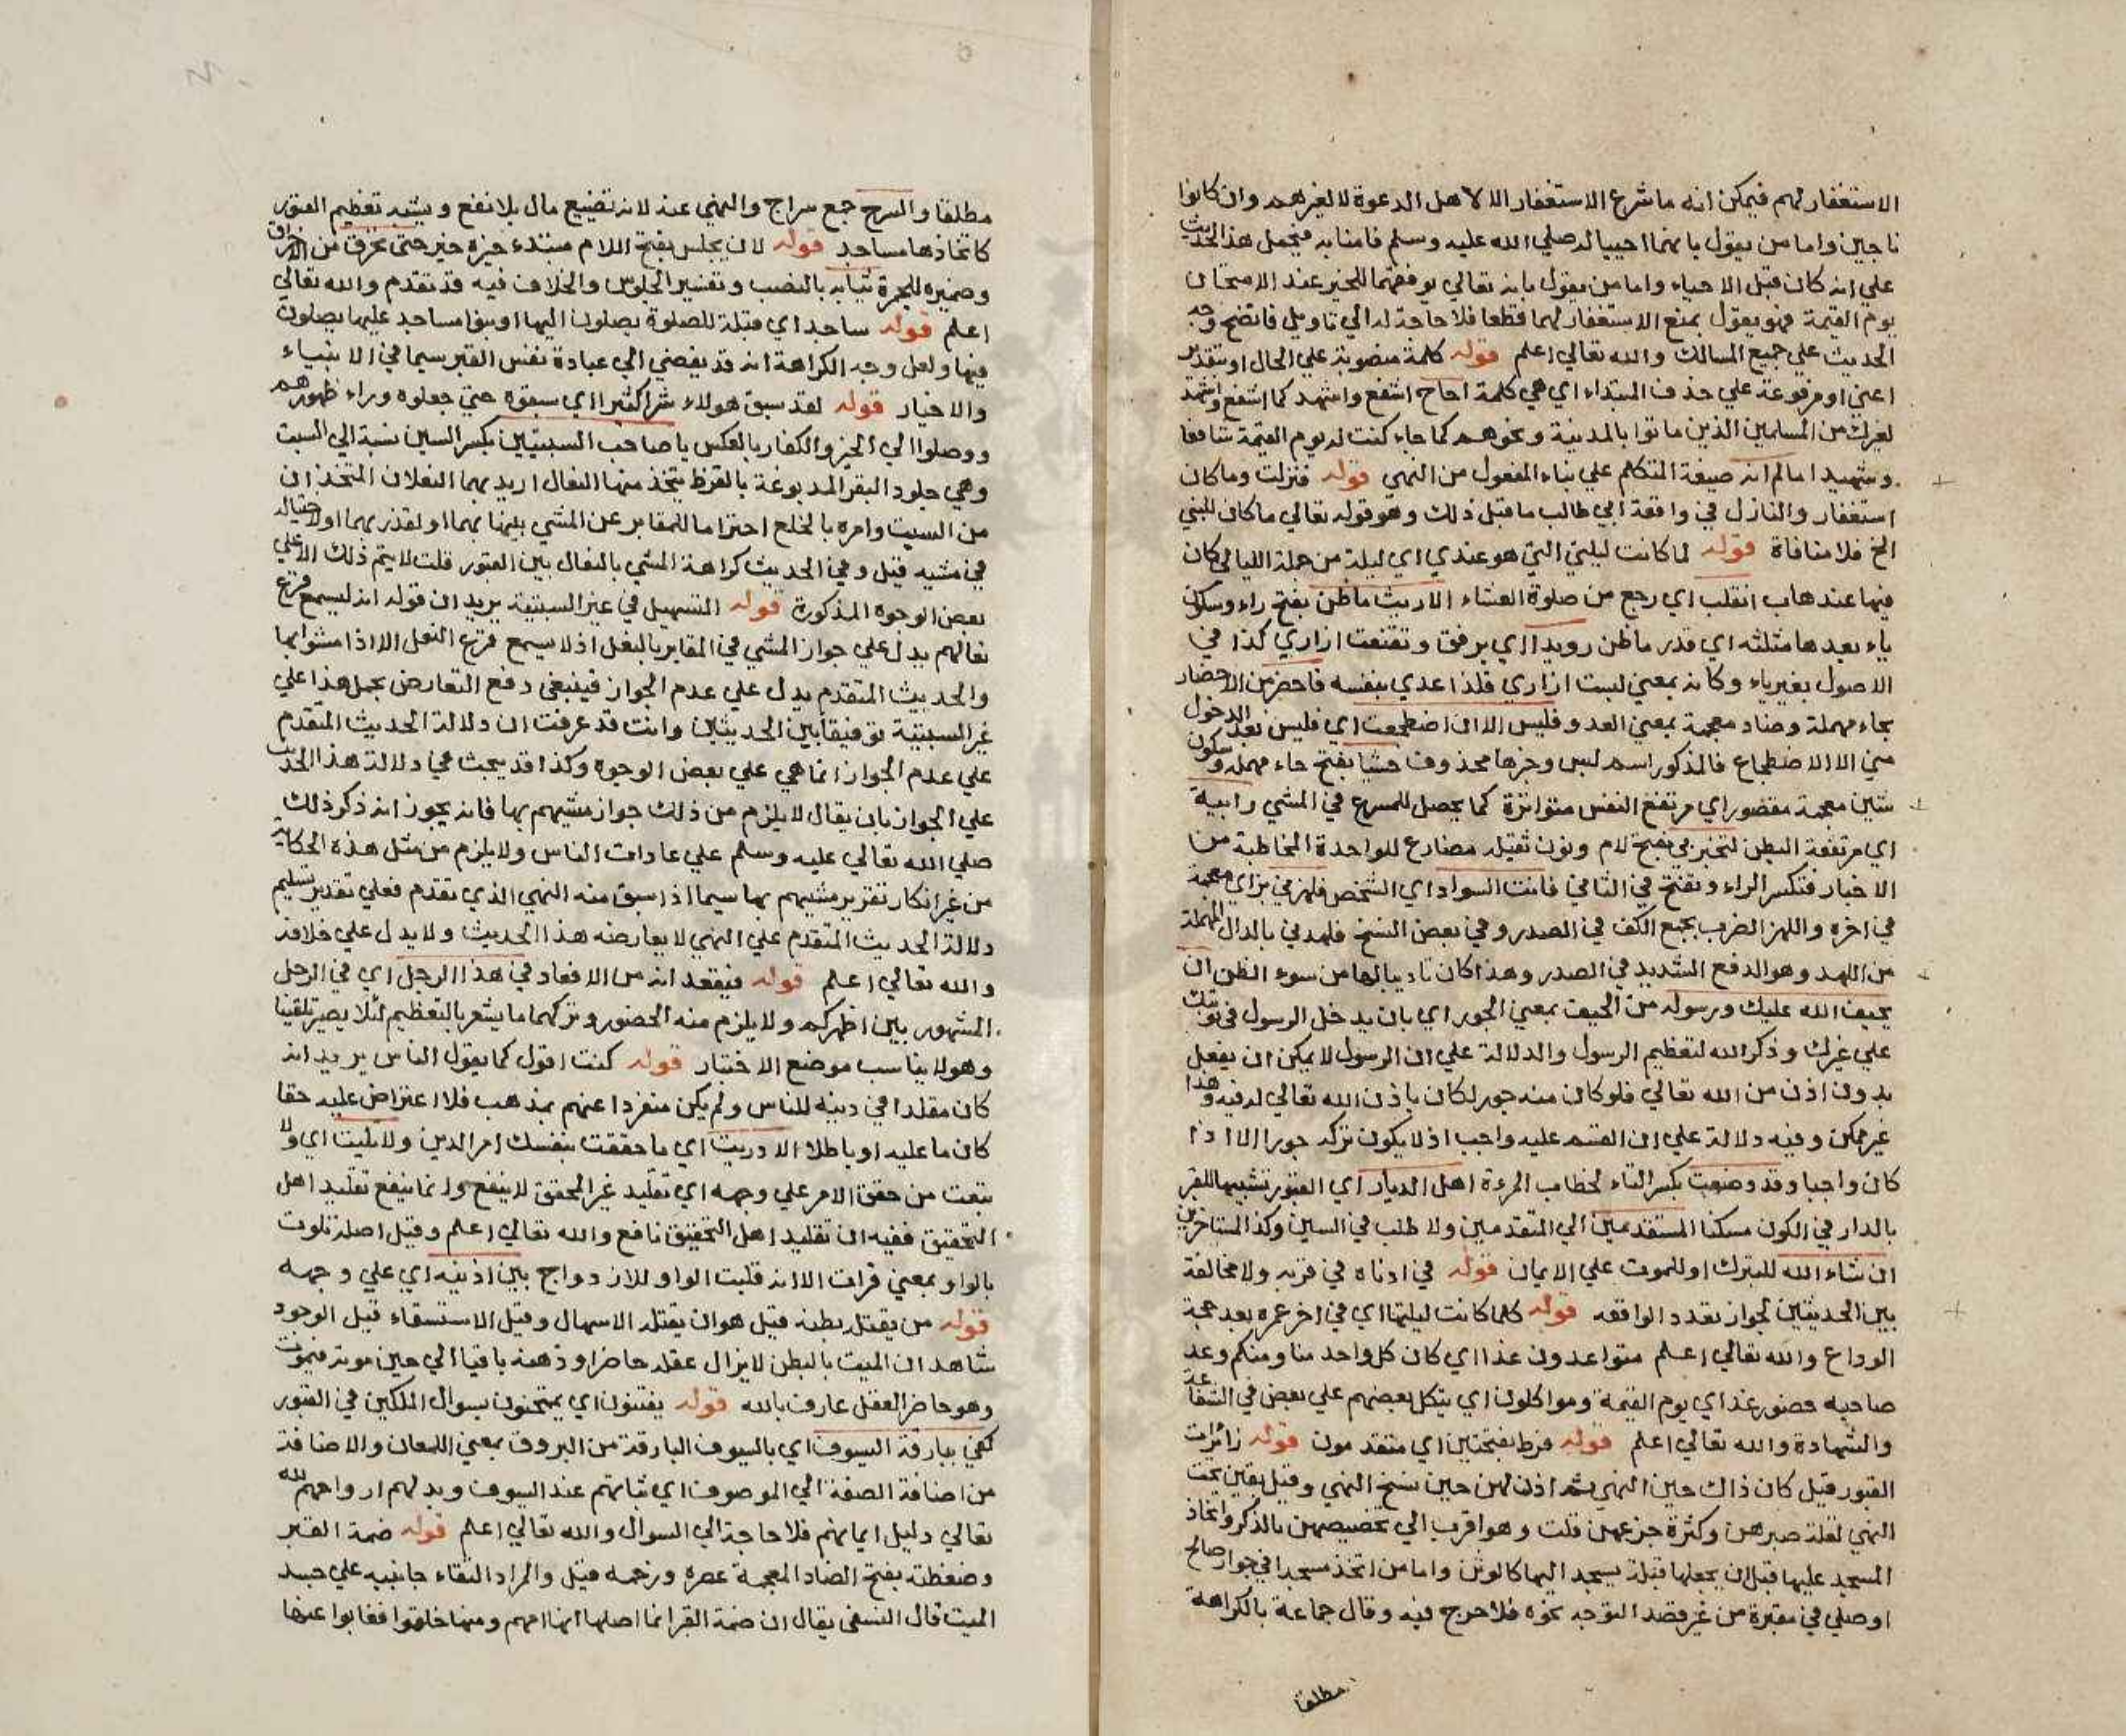 الاستغفار لهم فيمكن انه ما شرع الاستغفار الا لاهل الدعوة لا لغيرهم وان كانوا
ناجين واما من يقول بانهما احييا له صلي الله عليه وسلم فامنا به فيحمل هذا الحديث
علي انه كان قبل الاحياء واما من يقول بانه تعالي يوفقهما للخير عند الامتحان
يوم القيمة فهو يقول بمنع الاستغفار لهما قطعا فلا حاجة له الي تاويل فاتضح وجه
الحديث علي جميع المسالك والله تعالي اعلم قوله كلمة منصوبة علي الحال او بتقدير
اعني او مرفوعة علي حذف المبتداء اي هي كلمة احاج اشفع واشهد كما اشفع واشهد
لغيرك من المسلمين الذين ماتوا بالمدينة ونحوهم كما جاء كنت له يوم القيمة شافعا
وشهيدا ما لم انه صيغة المتكلم علي بناء المفعول من النهي قوله فنزلت وما كان
استغفار والنازل في واقعة ابي طالب ما قبل ذلك وهو قوله تعالي ما كان للنبي
الخ فلا منافاة قوله لما كانت ليلتي التي هو عندي اي ليلة من جملة الليالي كان
فيها عندها انقلب اي رجع من صلوة العشاء الا ريث ما ظن بفتح راء وسكون
ياء بعدها مثلثه اي قدر ما ظن رويدا اي برفق وتقنعت ازاري كذا في
الاصول بغير باء وكانه بمعني لبست ازاري فلذا عدي بنفسه فاحضر من الاحضار
بحاء مهملة وضاد معجمة بمعني العدو فليس الا ان اضطجعت اي فليس بعد الدخول
مني الا الاضطجاع فالمذكور اسم ليس وخبرها محذوف حشيا بفتح حاء مهملة وسكون
شين معجمة مقصور اي مرتفع النفس متواترة كما يحصل للمسرع في المشي رابية
اي مرتفعة البطن لتخبرني بفتح لام ونون ثقيلة مضارع للواحدة المخاطبة من
الاخبار فتكسر الراء وتفتح في الثاني فانت السواد اي الشخص فلهزني بزاي معجمة
في اخره واللهز الضرب بجمع الكف في الصدر وفي بعض النسخ فلهدني بالدال المهملة
من اللهد وهو الدفع الشديد في الصدر وهذا كان تاديبا لها من سوء الظن ان
يحيف الله عليك ورسوله من الحيف بمعني الجور اي بان يدخل الرسول في نوبتك
علي غيرك وذكر الله لتعظيم الرسول والدلالة علي ان الرسول لا يمكن ان يفعل
بدون اذن من الله تعالي فلو كان منه جور لكان باذن الله تعالي له فيه وهذا
غير ممكن وفيه دلالة علي ان القسم عليه واجب اذ لا يكون تركه جورا الا اذا
كان واجبا وقد وضعت بكسر التاء لخطاب المرءة اهل الديار اي القبور تشبيها للقبر
بالدار في الكون مسكنا المستقدمين الي المتقدمين ولا طلب في السين وكذا المستاخرين
ان شاء الله للتبرك او للموت علي الايمان قوله في ادناه في قربه ولا مخالفة
بين الحديثين لجواز تعدد الواقعه قوله كلما كانت ليلتها اي في اخر عمره بعد حجة
الوداع والله تعالي اعلم متواعدون غدا اي كان كل واحد منا ومنكم وعد
صاحبه حضور غد اي يوم القيمة ومواكلون اي يتكل بعضهم علي بعض في الشفاعة
والشهادة والله تعالي اعلم قوله فرط بفتحتين اي متقدمون قوله زائرات
القبور قيل كان ذاك حين النهي ثم اذن لهن حين نسخ النهي وقيل بقين تحت
النهي لقلة صبرهن وكثرة جزعهن قلت وهو اقرب الي تخصيصهن بالذكر واتخاذ
المسجد عليها قيل ان يجعلها قبلة يسجد اليها كالوثن واما من اتخذ مسجدا في جوار صالح
او صلي في مقبرة من غير قصد التوجه نحوه فلا حرج فيه وقال جماعة بالكراهة
مطلقا
مطلقا والسرج جمع سراج والنهي عنه لانه تضييع مال بلا نفع ويشبه تعظيم القبور
كاتخاذها مساجد قوله لان يجلس بفتح اللام مبتدء خبره خير حتي تحرق من الاحراق
وضميره للجمرة ثيابه بالنصب وتفسير الجلوس والخلاف فيه قد تقدم والله تعالي
اعلم قوله مساجد اي قبلة للصلوة يصلون اليها او بنوا مساجد عليها يصلون
فيها ولعل وجه الكراهة انه قد يفضي الي عبادة نفس القبر سيما في الانبياء
والاحبار قوله لقد سبق هولاء شرا كثيرا اي سبقوه حتي جعلوه وراء ظهورهم
ووصلوا الي الخير والكفار بالعكس يا صاحب السبتيتين بكسر السين نسبة الي السبت
وهي جلود البقر المدبوغة بالقرظ يتخذ منها النعال اريد بهما النعلان المتخذان
من السبت وامره بالخلع احتراما للمقابر عن المشي بينها بهما او لقذر بهما او لاختياله
في مشيه قيل وفي الحديث كراهة المشي بالنعال بين القبور قلت لا يتم ذلك الا علي
بعض الوجوه المذكورة قوله التسهيل في غير السبتية يريد ان قوله انه ليسمع قرع
نعالهم يدل علي جواز المشي في المقابر بالنعل اذ لا يسمع قرع النعل الا اذا مشوا بها
والحديث المتقدم يدل علي عدم الجواز فينبغي دفع التعارض بحمل هذا علي
غير السبتية توفيقا بين الحديثين وانت قد عرفت ان دلالة الحديث المتقدم
علي عدم الجواز انما هي علي بعض الوجوه وكذا قد يبحث في دلالة هذا الحديث
علي الجواز بان يقال لا يلزم من ذلك جواز مشيهم بها فانه يجوز انه ذكر ذلك
صلي الله تعالي عليه وسلم علي عادات الناس ولا يلزم من مثل هذه الحكاية
من غير انكار تقرير مشيهم بها سيما اذا سبق منه النهي الذي تقدم فعلي تقدير تسليم
دلالة الحديث المتقدم علي النهي لا يعارضه هذا الحديث ولا يدل علي خلافه
والله تعالي اعلم قوله فيقعدانه من الاقعاد في هذا الرجل اي في الرجل
المشهور بين اظهركم ولا يلزم منه الحضور وتركهما ما يشعر بالتعظيم لئلا يصير تلقينا
وهو لا يناسب موضع الاختبار قوله كنت اقول كما يقول الناس يريد انه
كان مقلدا في دينه للناس ولم يكن منفردا عنهم بمذهب فلا اعتراض عليه حقا
كان ما عليه او باطلا لا دريت اي ما حققت بنفسك امر الدين ولا تليت اي ولا
تبعت من حقق الامر علي وجهه اي تقليد غير المحقق لا ينفع وانما ينفع تقليد اهل
التحقيق ففيه ان تقليد اهل التحقيق نافع والله تعالي اعلم وقيل اصله تلوت
بالواو بمعني قرات الا انه قلبت الواو للازدواج بين اذنيه اي علي وجهه
قوله من يقتله بطنه قيل هو ان يقتله الاسهال وقيل الاستسقاء قيل الوجود
شاهد ان الميت بالبطن لا يزال عقله حاضرا وذهنه باقيا الي حين موته فيموت
وهو حاضر العقل عارف بالله قوله يفتنون اي يمتحنون بسوال الملكين في القبور
كفي ببارقة السيوف اي بالسيوف البارقة من البروق بمعني اللمعان والاضافة
من اضافة الصفة الي الموصوف اي ثباتهم عند السيوف وبذلهم ارواحهم لله
تعالي دليل ايمانهم فلا حاجة الي السوال والله تعالي اعلم قوله ضمة القبر
وضغطته بفتح الضاد المعجمة عصره وزحمه قيل والمراد التقاء جانبيه علي جسد
الميت قال النسفي يقال ان ضمة القبر انما اصلها انها امهم ومنها خلقوا فغابوا عنها